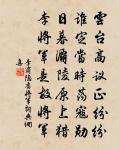 雲台高議正紛紛
誰定當時蕩寇勛
日暮灞陵原上獵
李將軍是故將軍
李商隱舊將軍